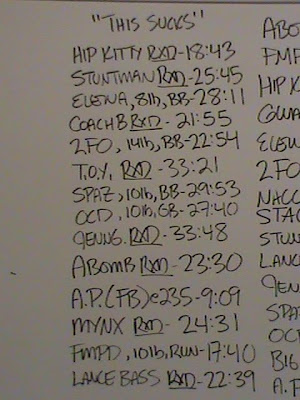 "THIS SUCKS"
HIP KITTY RXD-18:43
STUNTMAN RXD-25:45
ELENA, 8lb, BB-28:11
COACH B RXD - 21:55
2FO, 14lb, BB-22:54
T.O.Y. RXD - 33:21
SPAZ, 10lb, BB-29:53
OCD, 10lb, GB-27:40
JENNG. RXD - 33:48
ABOMB RXD-23:30
A.P.(FB)@235-9:09
MYNX RXD- 24:31
FMPD, 10lb, RUN-17:40
LANCE BASS RXD-22:39
ABO
FMP
HIP K
ELEN
2FO
NACC
STAC
STUN
LANC
JEN
SPA
OC
BIG
A.F